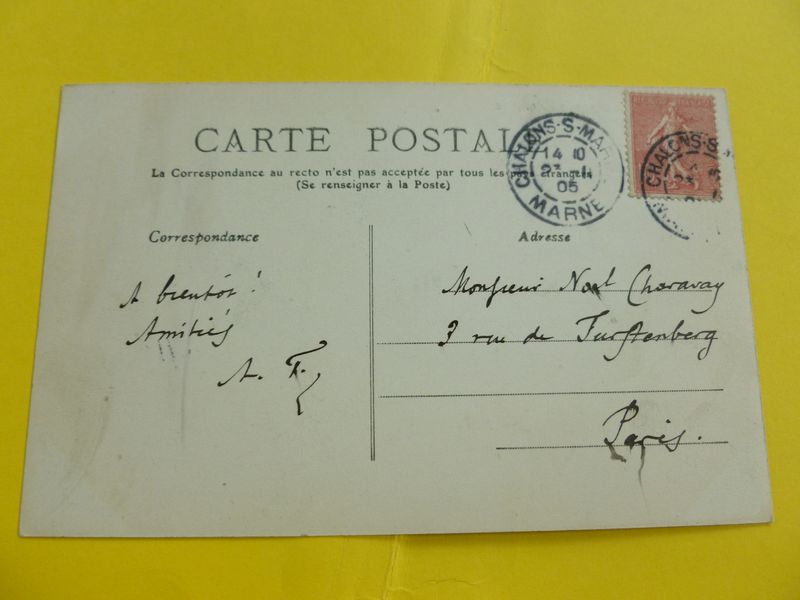 CARTE POSTALE
La Correspondance au recto n'est pas acceptée par tous les pays étrangers
(Se renseigner à la Poste)
CHALONS-S-MARNE
14 10
23
05
MARNE
CHALONS-S
Correspondance
A bientôt !
Amitiés
A. F.
Adresse
Monsieur Noël Charavay
3 rue de Furstenberg
Paris.